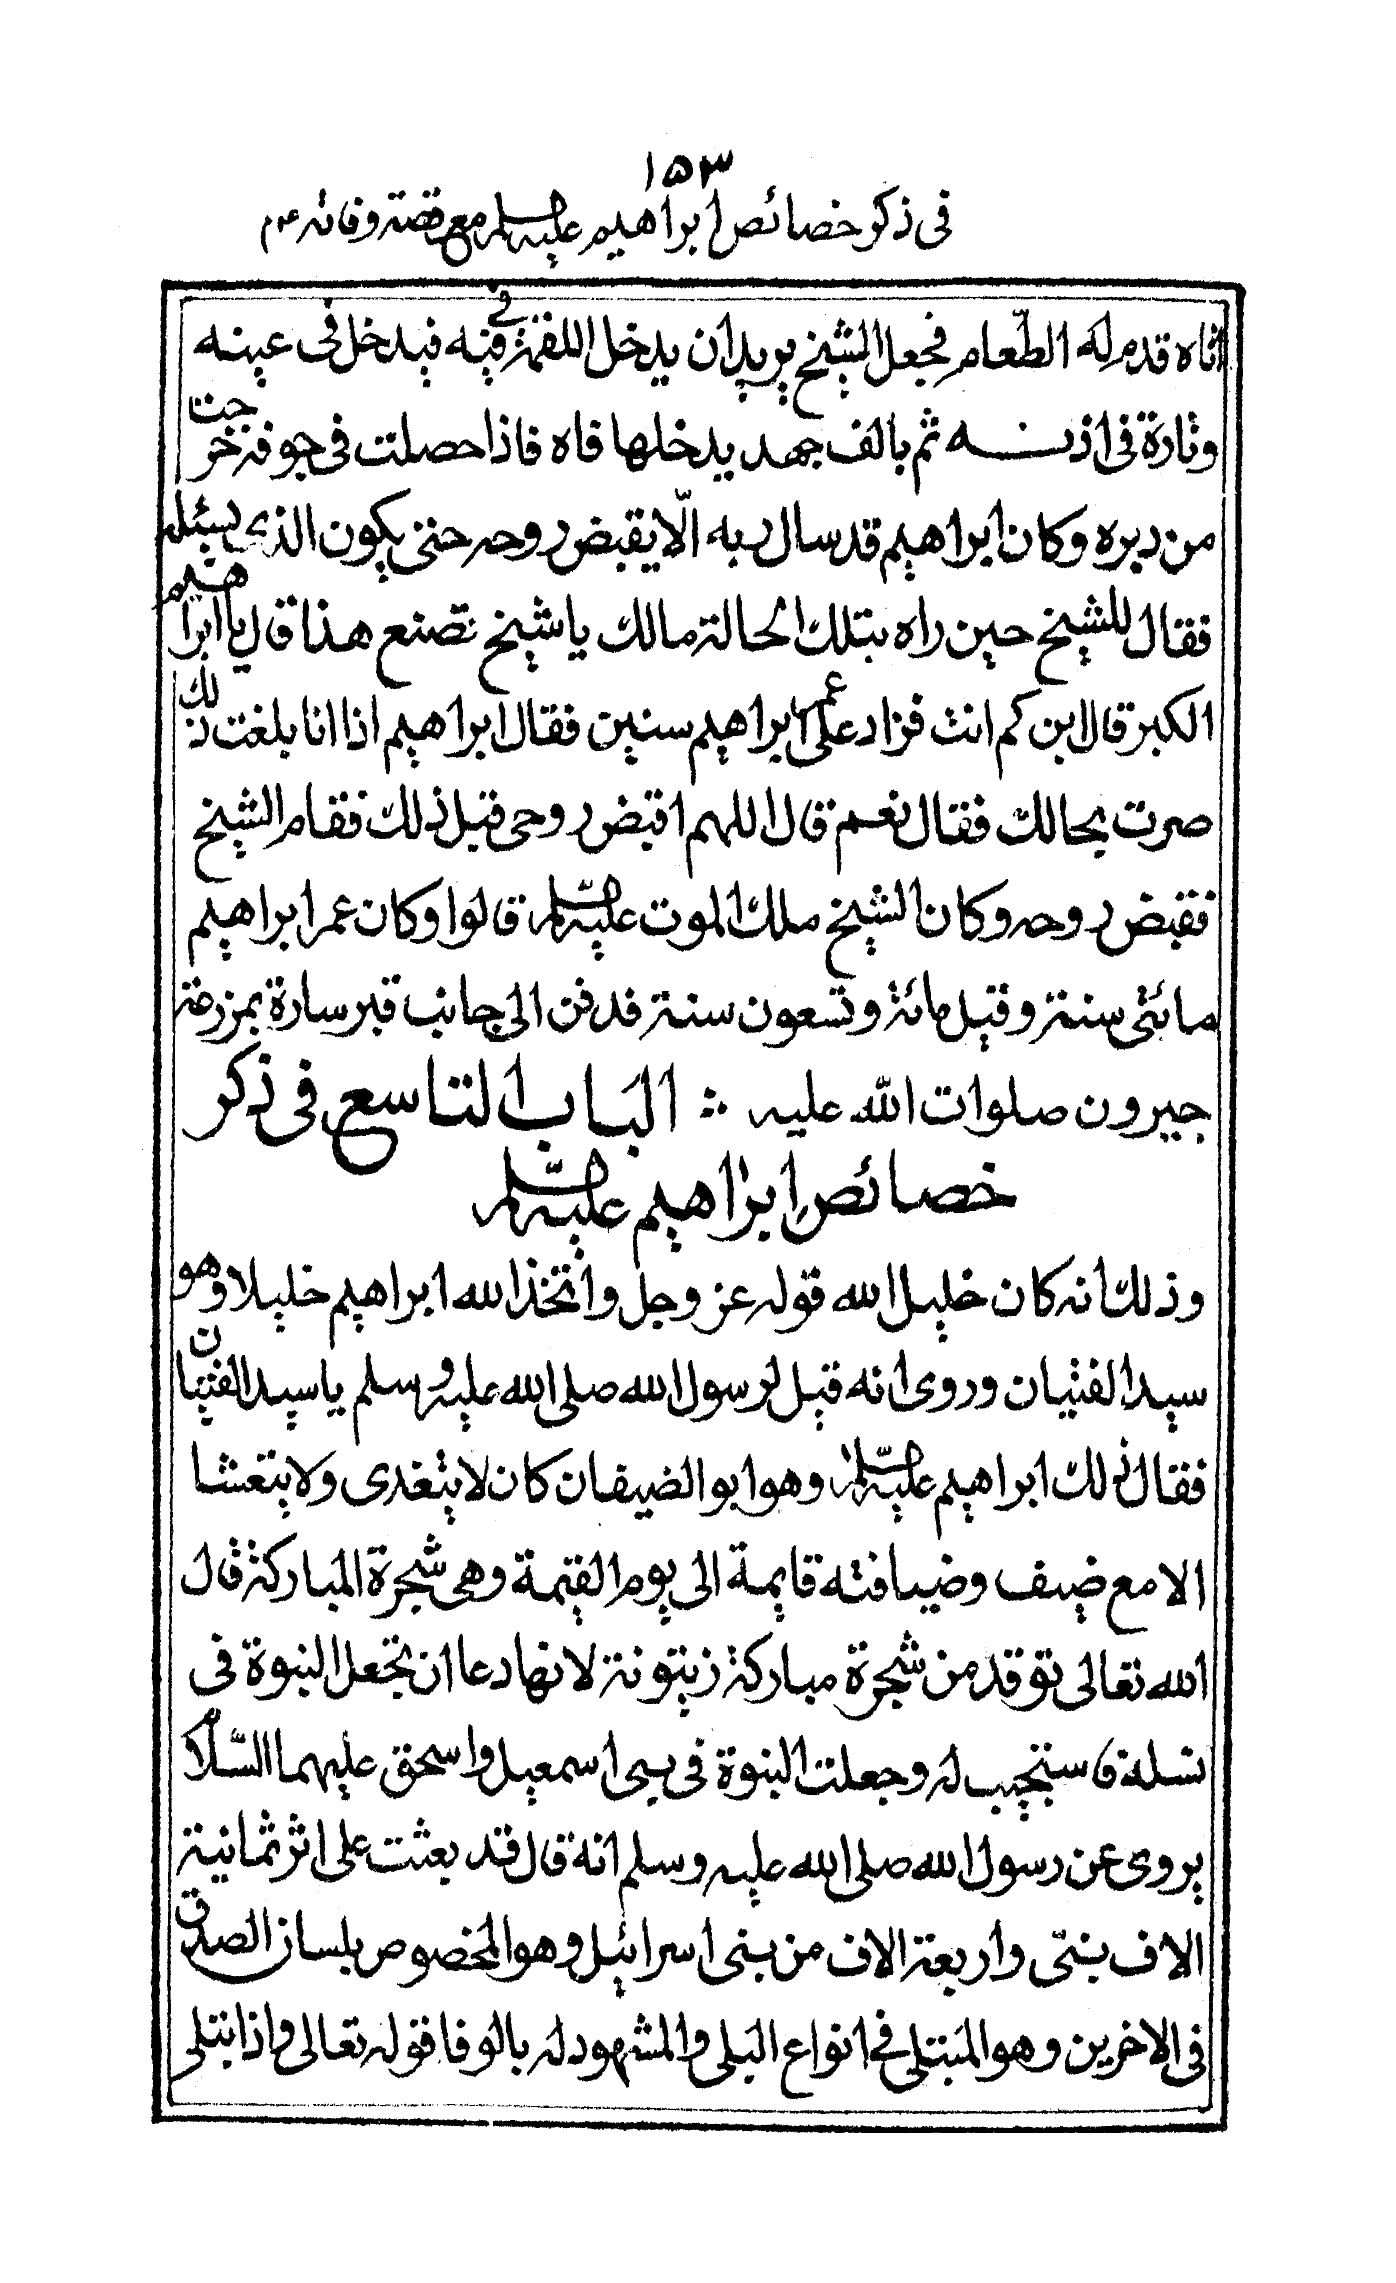 ١٥٣
فى ذكر خصائص ابراهيم عليه السلام مع قصة وفاته ع م
اتاه قدم له الطّعام فجعل الشيخ يريد ان يدخل اللقمة فى فيه فيدخل فى عينه
وتارة فى اذنه ثم بالف جهد يدخلها فاه فاذا حصلت فى جوفه خرجت
من دبره وكان ابراهيم قد سال ربه الّا يقبض روحه حتى يكون الذى يسئله
فقال للشيخ حين راه بتلك الحالة مالك يا شيخ تصنع هذا قال يا ابراهيم
الكبر قال ابن كم انت فزاد على عمر ابراهيم سنين فقال ابراهيم اذا انا بلغت ذلك
صرت بحالك فقال نعم قال اللهم اقبض روحى قبل ذلك فقام الشيخ
فقبض روحه وكان الشيخ ملك الموت عليه السلم قالوا وكان عمر ابراهيم
مائتى سنة وقيل مائة وتسعون سنة فدفن الى جانب قبر سارة بمزرعة
جيرون صلوات الله عليه ؞ الباب التاسع فى ذكر
خصائص ابراهيم عليه السّلم
وذلك انه كان خليل الله قوله عز وجل واتخذ الله ابراهيم خليلا وهو
سيد الفتيان وروى انه قيل لرسول الله صلى الله عليه وسلم يا سيد الفتيان
فقال ذلك ابراهيم عليه السّلم وهو ابو الضيفان كان لا يتغدى ولا يتعشا
الا مع ضيف وضيافته قايمة الى يوم القيمة وهى شجرة المباركة قال
الله تعالى توقد من شجرة مباركة زيتونة لانها دعا ان تجعل النبوة فى
نسله فاستجيب له وجعلت النبوة فى بنى اسمعيل واسحق عليهما السّلام
يروى عن رسول الله صلى الله عليه وسلم انه قال قد بعثت على اثر ثمانية
الاف نبتى واربعة الاف من بنى اسرائيل وهو المخصوص بلسان الصدق
فى الاخرين وهو المبتلى فى انواع البلى والمشهود له بالوفا قوله تعالى واذا بتلى